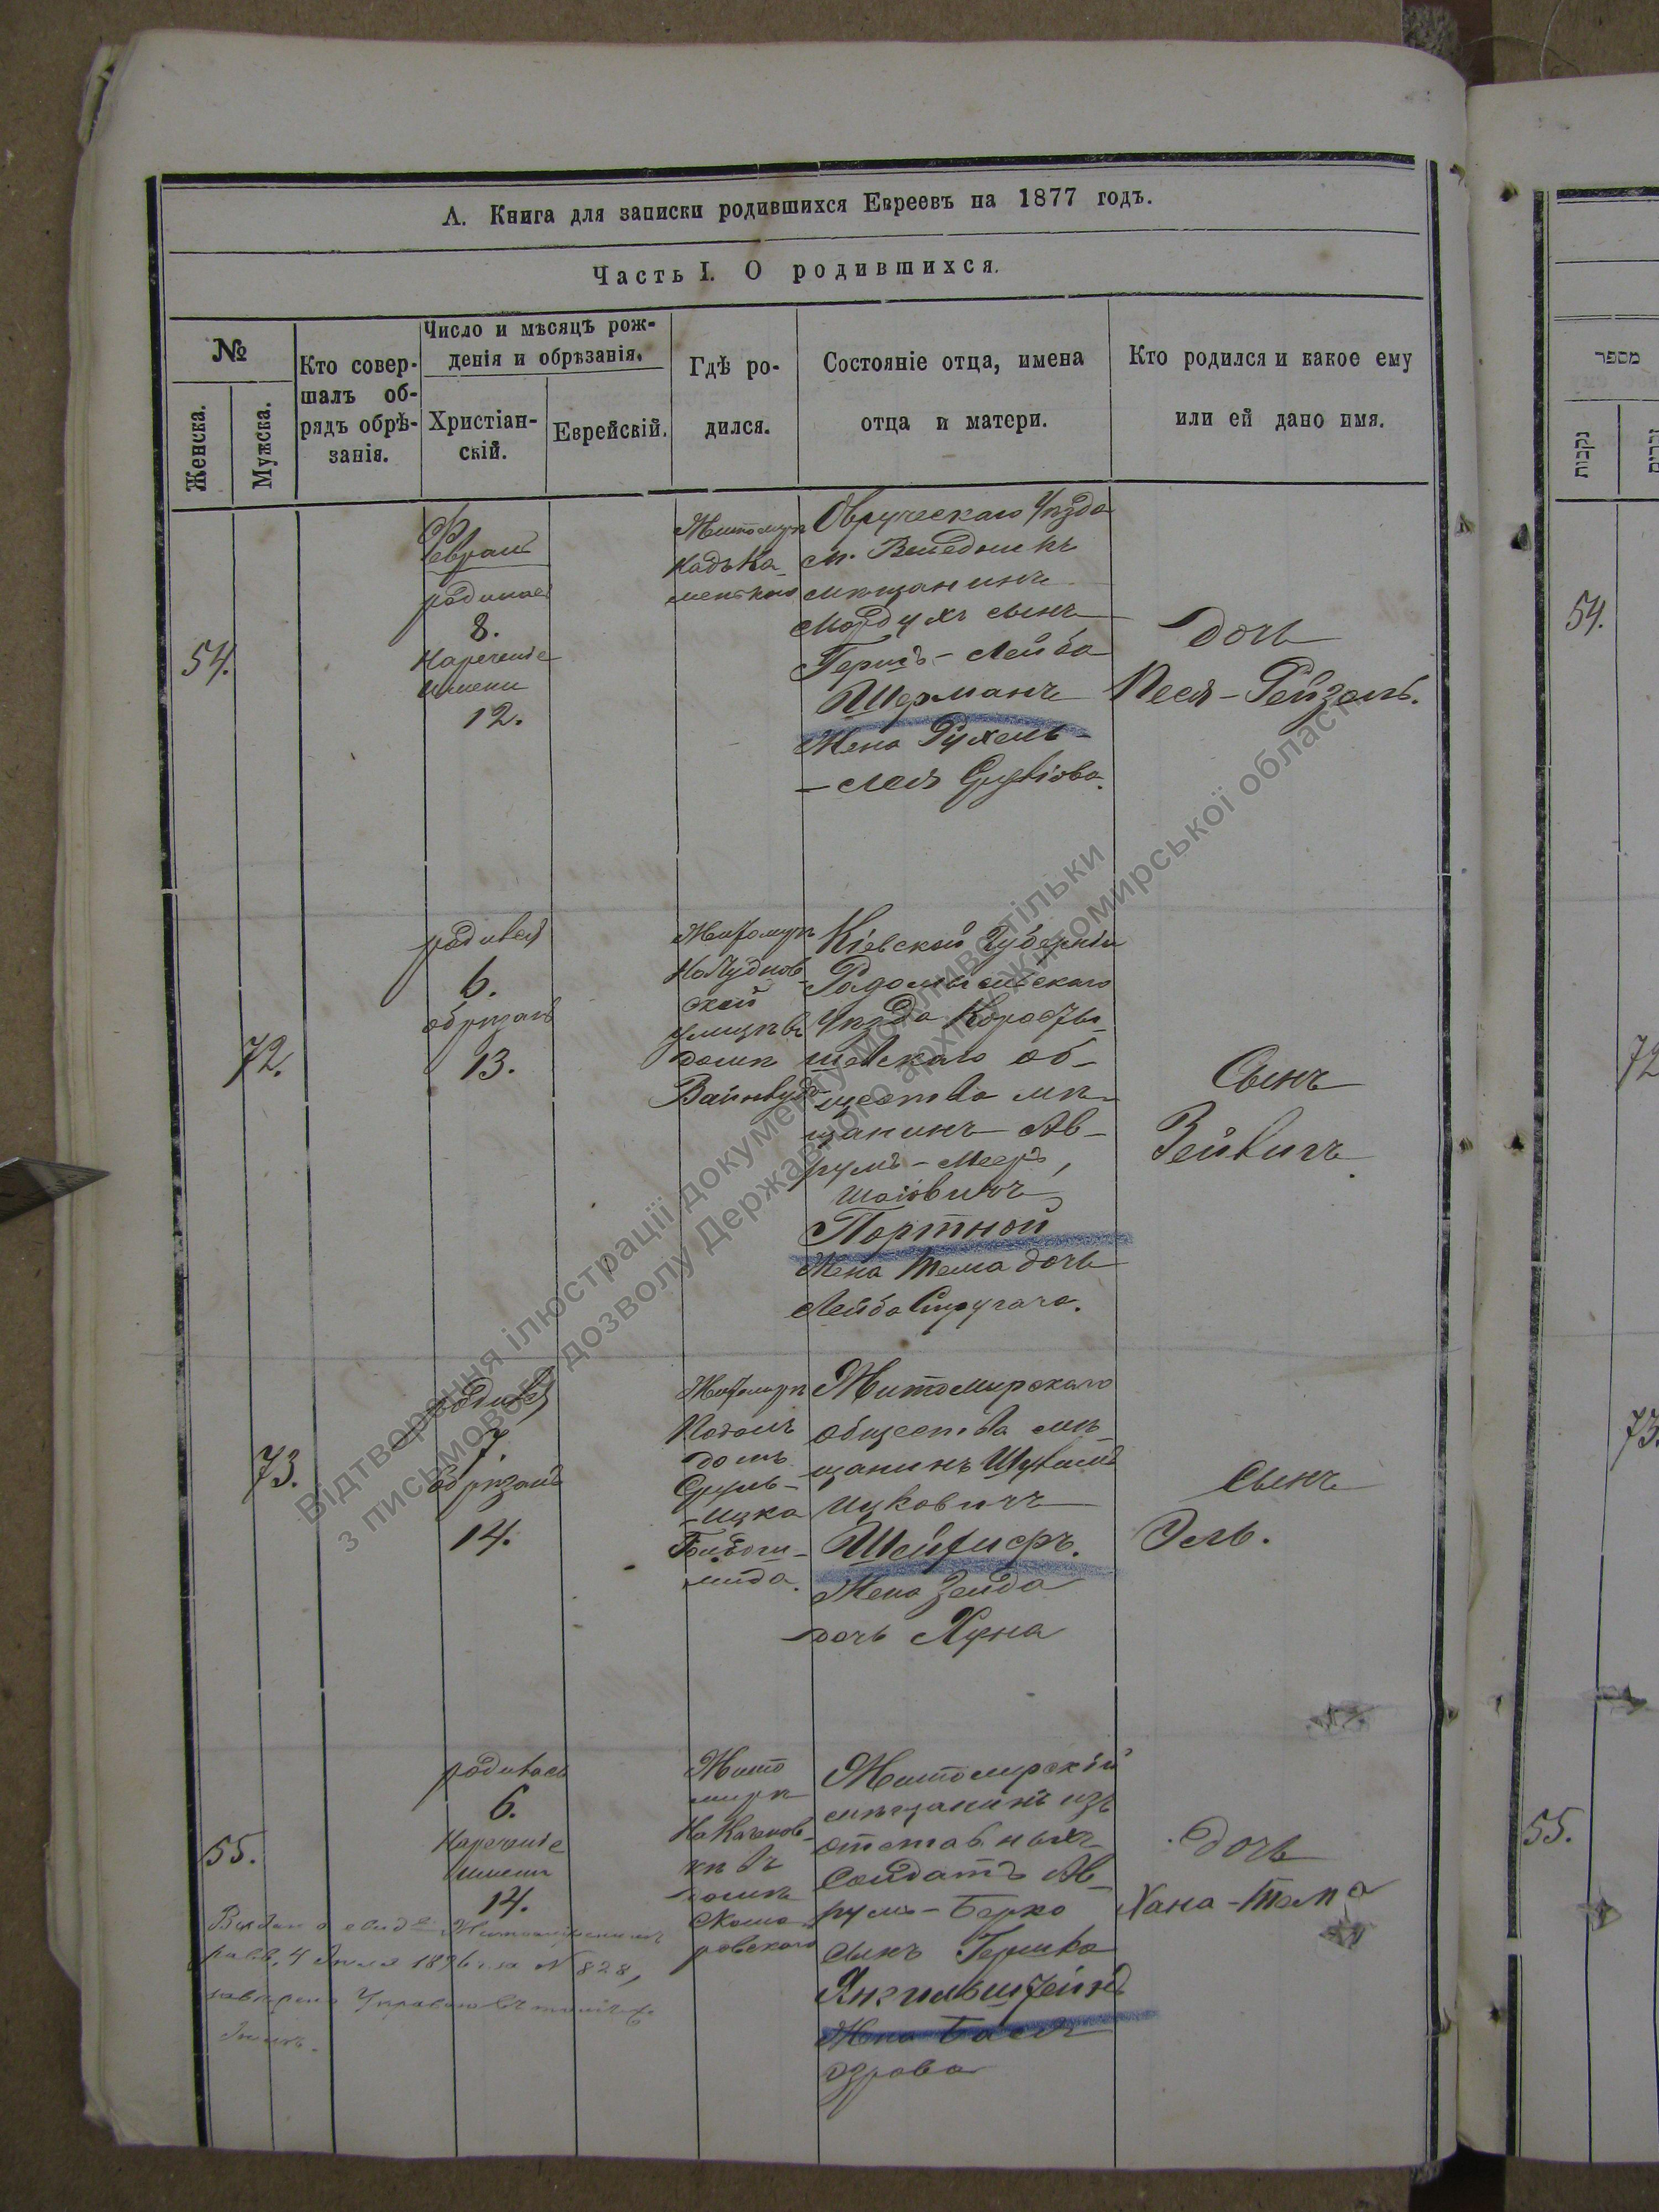 А. Книга для записки родившихся Евреевъ на 1877 годъ.
Часть I. О родившихся.
№
Женска.
Мужска.
Кто совер-
шалъ об-
рядъ обрѣ-
занія.
Число и мѣсяцъ рож-
денія и обрѣзанія.
Христіан-
скій.
Еврейскій.
Гдѣ ро-
дился.
Состояніе отца, имена
отца и матери.
Кто родился и какое ему
или ей дано имя.
54.
родилась
8.
Нареченіе
имени
12.
Житомиръ
надъ Ка-
менкою
Овручскаго Уѣзда
м.
мѣщанинъ
Мордухъ сынъ
Гершъ-Лейба
Шерманъ
Жена Рухель-
-Лея Сруліова.
дочь
Песя-Рейзель.
72.
родился
6.
обрѣзанъ
13.
Житомиръ
На Чуднов-
ской
улицѣ въ
домѣ
Кіевской Губерніи
Радомысльскаго
Уѣзда Коросты-
шевскаго об-
щества мѣ-
щанинъ Ав-
румъ-Мееръ,
Шаіовичъ
Портной
Жена Тема дочь
Лейба Стругача.
Сынъ
Зейвигъ
73.
родился
7.
обрѣзанъ
14.
Житомиръ
Подолъ
домъ
Сруль-
-Ицка
Житомирскаго
общества мѣ-
щанинъ
Ицковичъ
Шейфисъ.
Жена Зелда
дочь Хуна
Сынъ
Эль.
55.
родилась
6.
Нареченіе
имени
14.
Жито
миръ
На Каченов-
кѣ въ
домѣ
Кома-
ровскаго
Житомирскій
мѣщанинъ изъ
отставныхъ
Солдатъ Ав-
румъ-Берко
сынъ Гершка
Янгильштейнъ
Жена Бася
дочь
Хана-Тема
4 Іюля 1896 за № 828,
מספר
נקבות
54.
72
73.
55.
Відтворення ілюстрації документу можливо тільки
з письмового дозволу Державного архіву Житомирської області